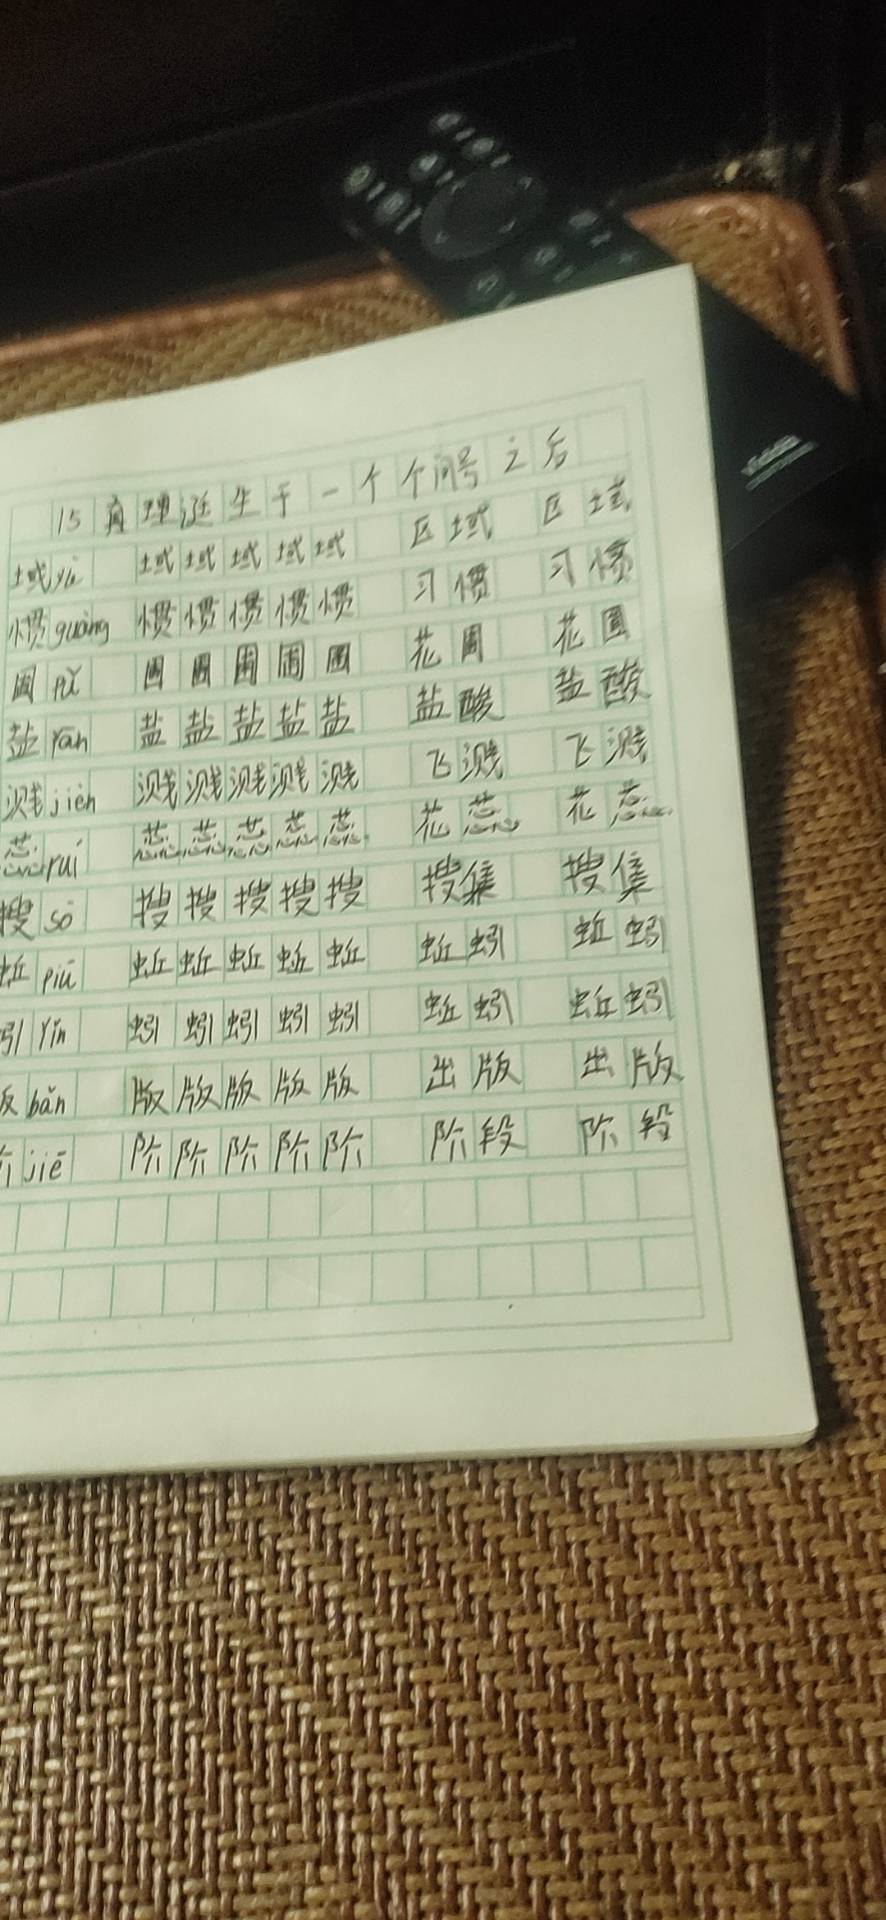 15 真理诞生于一个个问号之后
域 yù 域域域域域 区域 区域
惯 guàng 惯惯惯惯惯 习惯 习惯
圃 pǔ 圃圃圃圃圃 花圃 花圃
盐 yán 盐盐盐盐盐 盐酸 盐酸
溅 jièn 溅溅溅溅溅 飞溅 飞溅
蕊 ruǐ 蕊蕊蕊蕊蕊 花蕊 花蕊
搜 sō 搜搜搜搜搜 搜集 搜集
蚯 piū 蚯蚯蚯蚯蚯 蚯蚓 蚯蚓
蚓 yǐn 蚓蚓蚓蚓蚓 蚯蚓 蚯蚓
版 bǎn 版版版版版 出版 出版
阶 jiē 阶阶阶阶阶 阶段 阶段